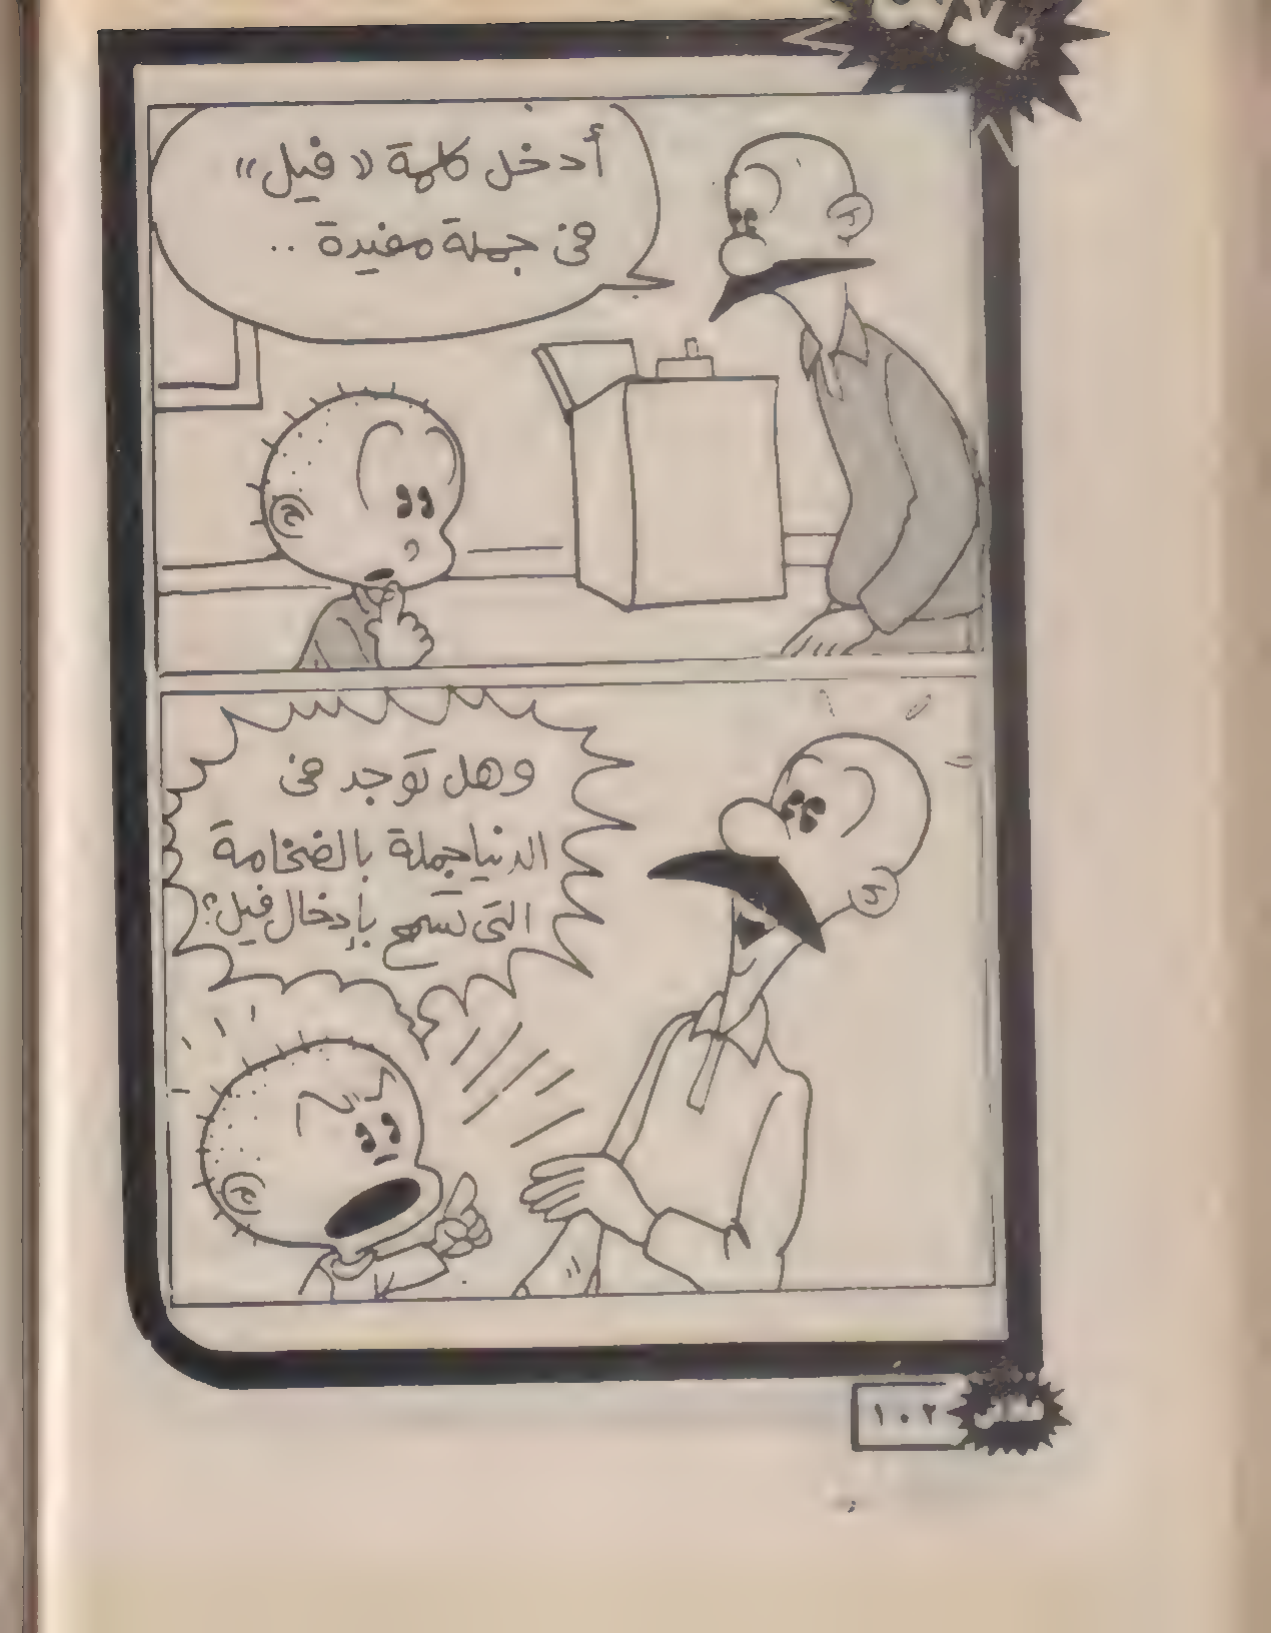 أدخل كلمة «فيل»
في جملة مفيدة ..
وهل توجد في
الدنيا جملة بالضخامة
التي تسمح بإدخال فيل؟
١٠٢